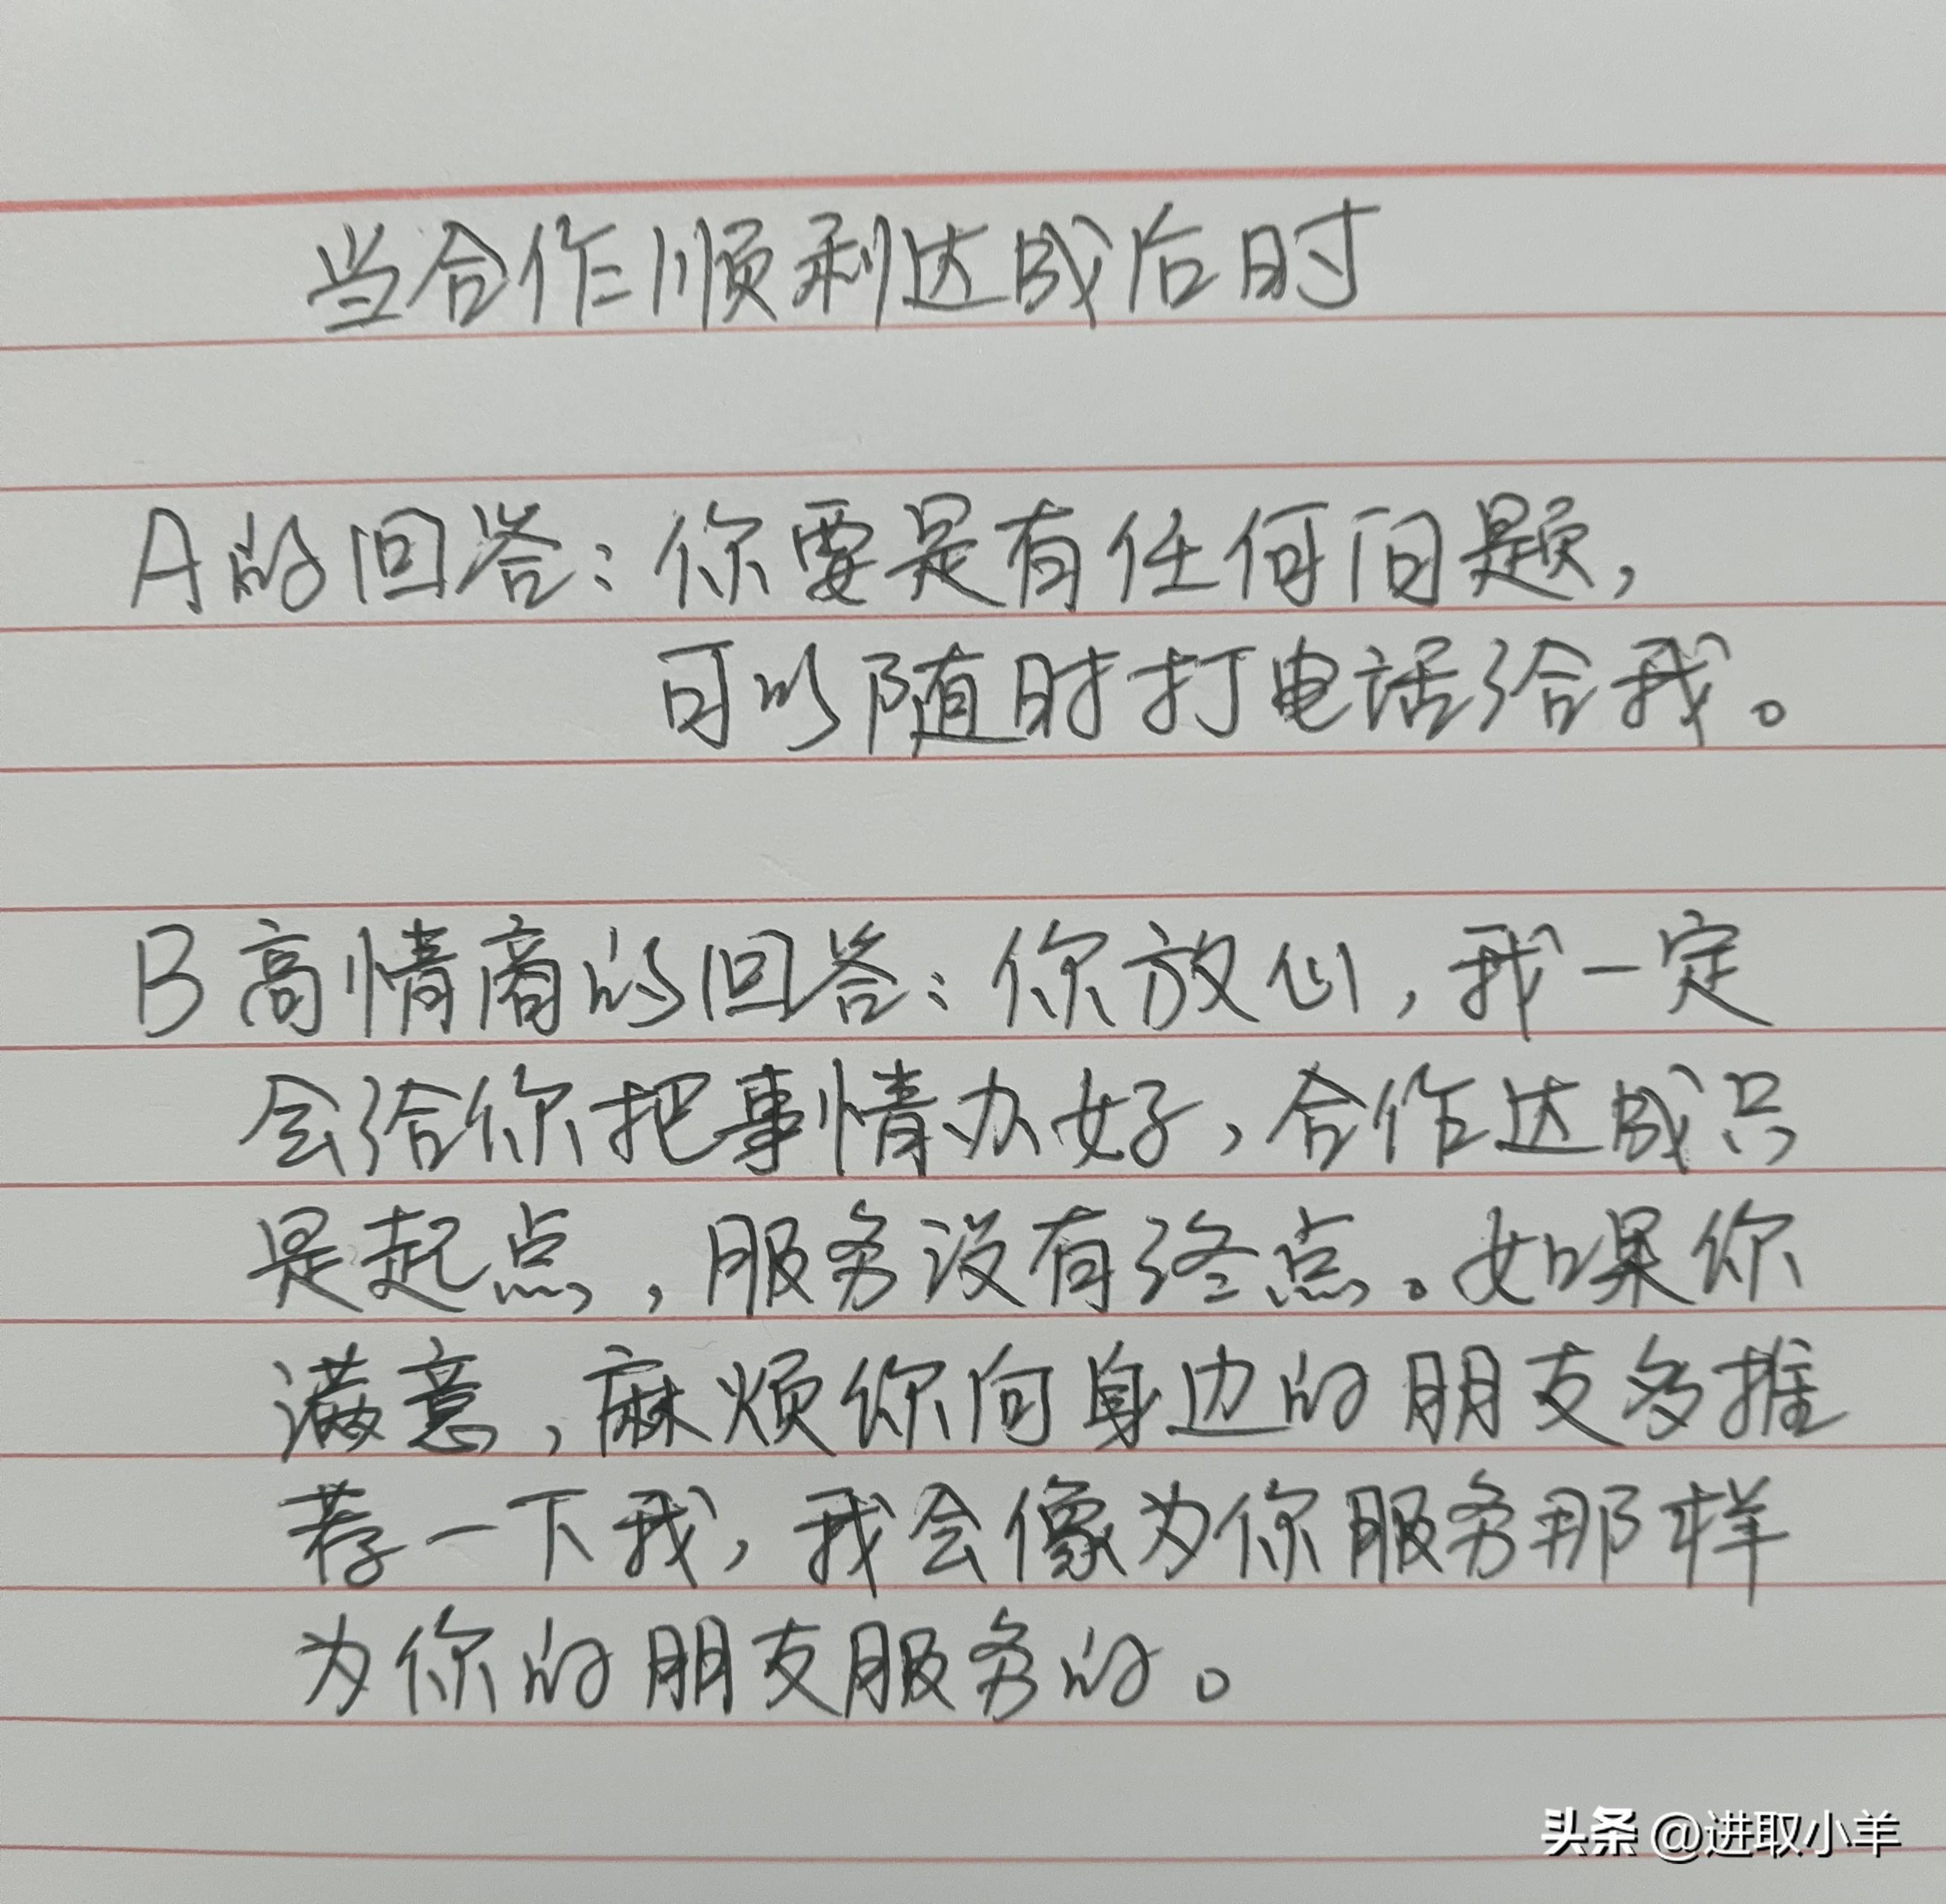 当合作顺利达成后时
A的回答：你要是有任何问题，
可以随时打电话给我。
B高情商的回答：你放心，我一定
会给你把事情办好，合作达成只
是起点，服务没有终点。如果你
满意，麻烦你向身边的朋友多推
荐一下我，我会像为你服务那样
为你的朋友服务的。
头条 @进取小羊